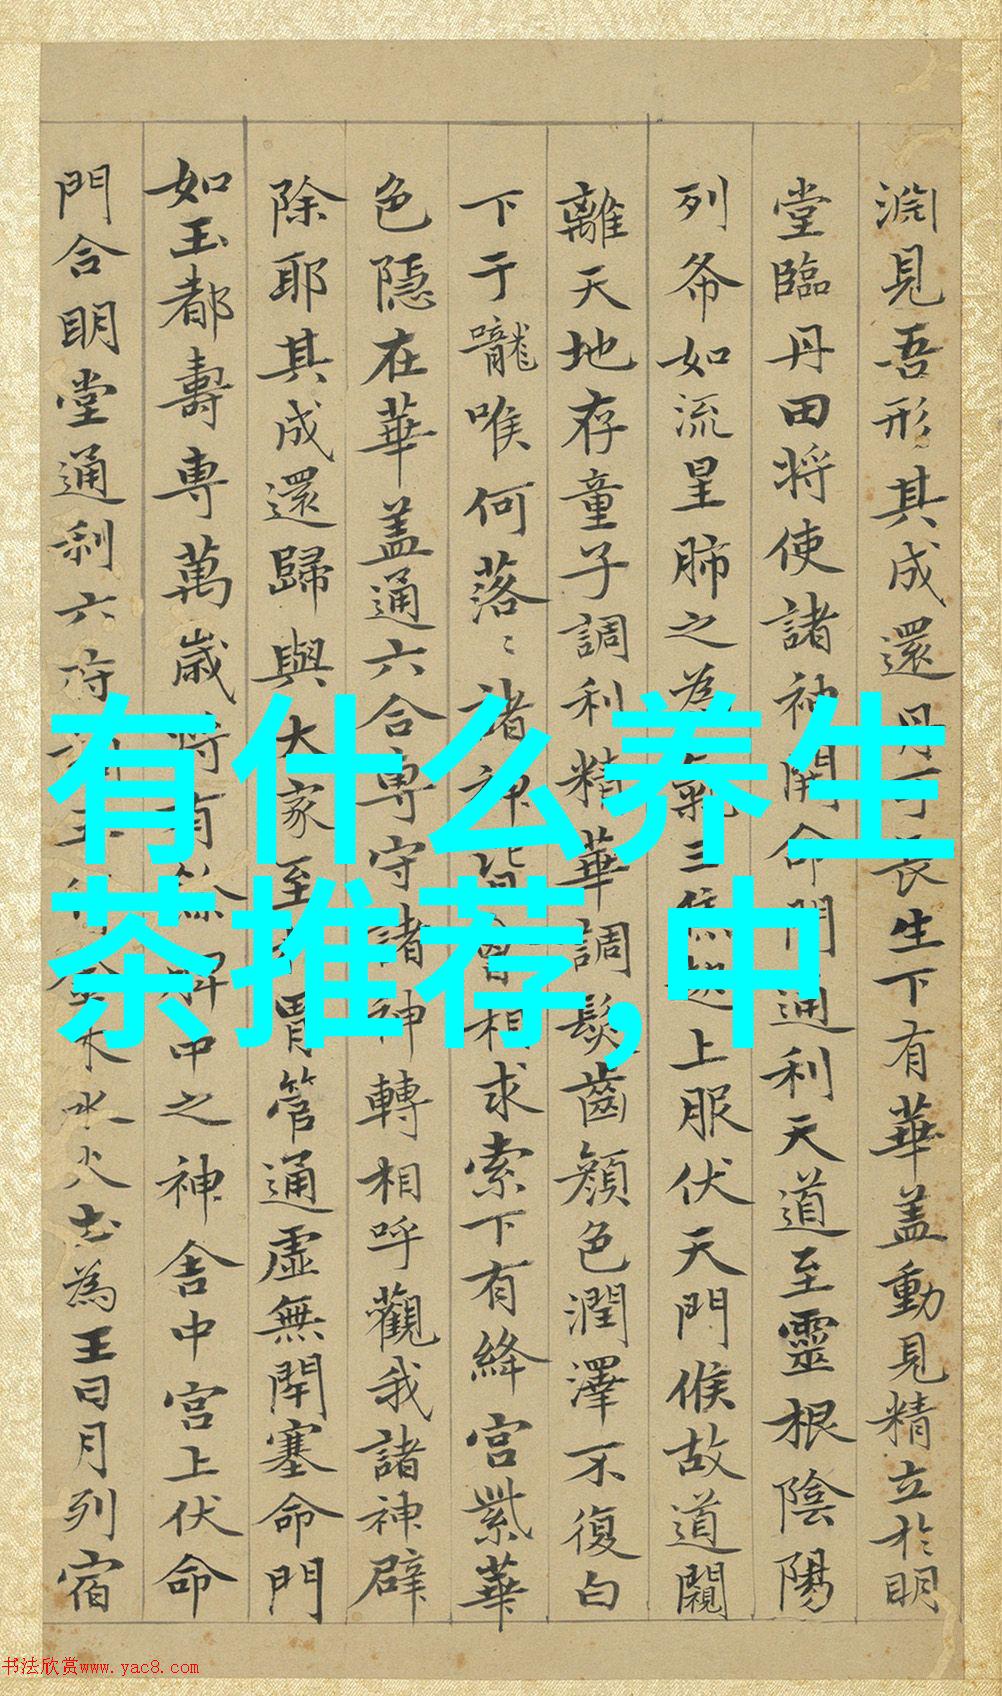 淵見吾形其成還丹可長生下有華盖動見精立於明
堂臨丹田将使諸神開命門通利天道至靈根陰陽
列布如流星肺之為氣三焦起上服伏天門候故道闚
離天地存童子調利精華調髮齒顔色潤澤不復白
下于嚨喉何落〻諸神皆會相求索下有絳宮紫華
色隱在華盖通六合専守諸神轉相呼觀我諸神辟
除耶其成還歸與大家至於胃管通虛無閇塞命門
如玉都壽専萬歲将有餘脾中之神舎中宮上伏命
門合明堂通利六府調五行金木水火土為王日月列宿
有什么养生
茶推荐,中
书法欣赏www.yac8.com